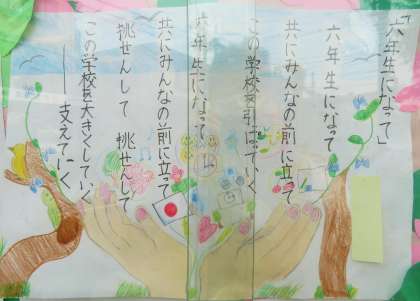 「六年生になって」
六年生になって
共にみんなの前に立って
この学校を引ぱていく
六年生になって
共にみんなの前に立って
挑せんして 挑せんして
この学校を大きくしていく
――支えていく